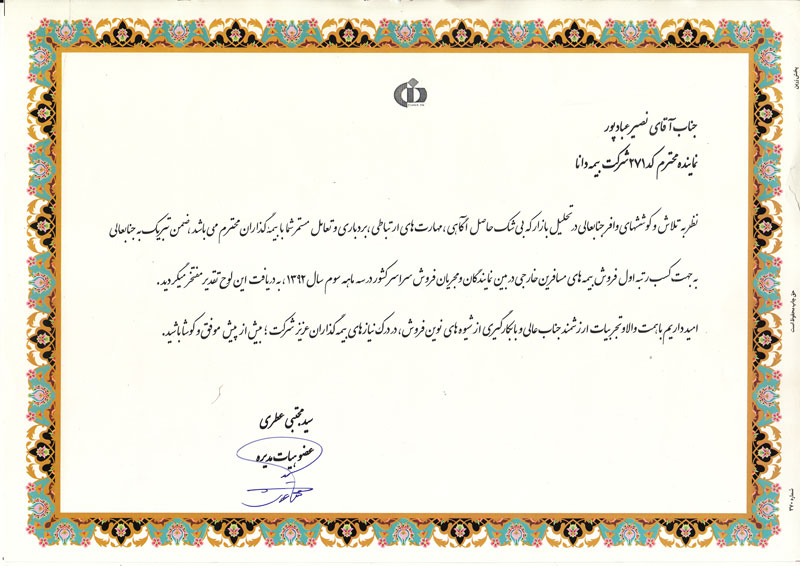 جناب آقای نصیر عبادپور
نماینده محترم کد ۲۷۱ شرکت بیمه دانا
نظر به تلاش و کوششهای وافر جنابعالی در تحلیل بازار که بی شک حاصل آگاهی، مهارت های ارتباطی، بردباری و تعامل مستمر شما با بیمه گذاران محترم می باشد، ضمن تبریک به جنابعالی
به جهت کسب رتبه اول فروش بیمه های مسافرین خارجی در بین نمایندگان و مجریان فروش سراسر کشور در سه ماهه سوم سال ۱۳۹۲، به دریافت این لوح تقدیر مفتخر میگردید.
امید داریم با همت والا و تجربیات ارزشمند جناب عالی و با بکارگیری از شیوه های نوین فروش، در درک نیازهای بیمه گذاران عزیز شرکت؛ بیش از پیش موفق و کوشا باشید.
سید مجتبی عطری
عضو هیات مدیره
پخش زرین
حق چاپ محفوظ است
شماره ۲۷۰